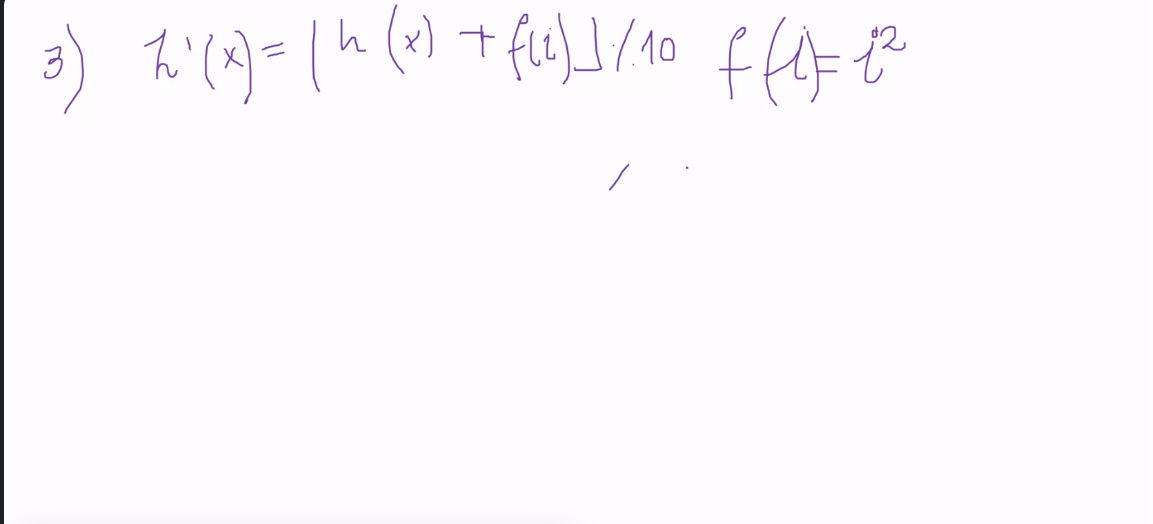 3) h'(x) = [h(x) + f(i)] % 10 f(i) = i²